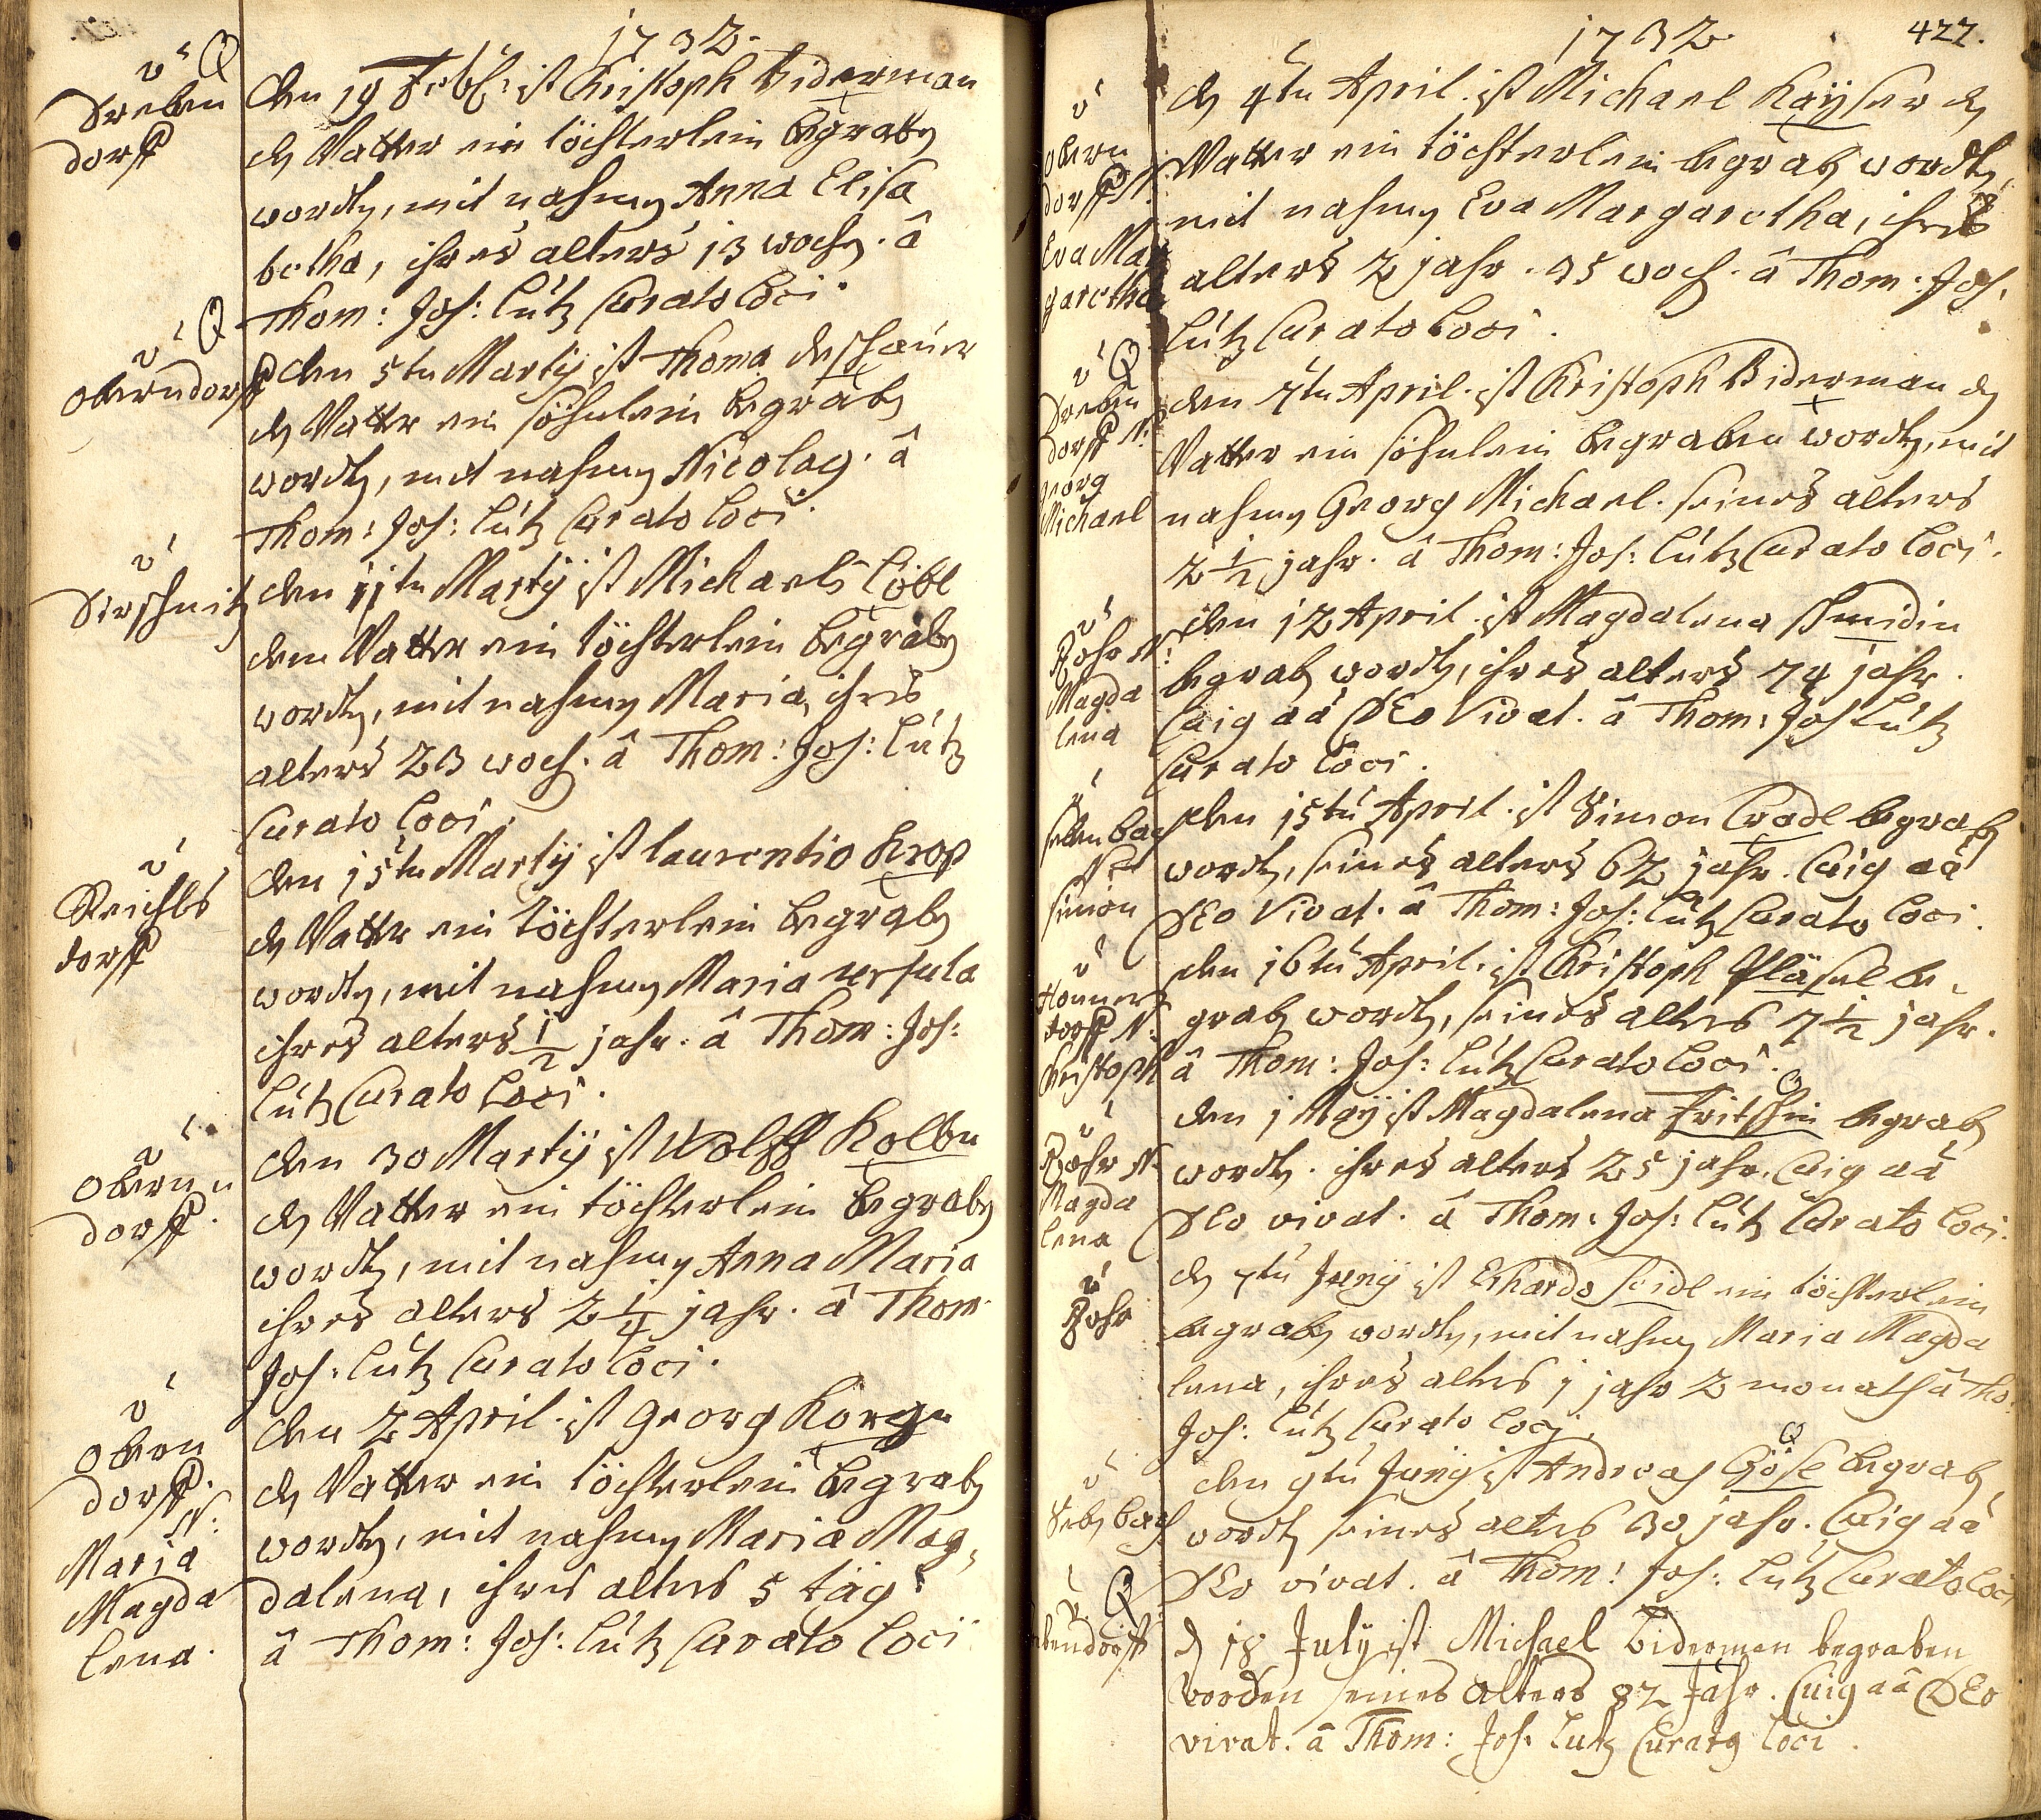 1732.
v
Treben
dorff
Den 19 Febr: ist Christoph Biderman
den Vatter ein töchterlein begraben
worden, mit nahmen Anna Elisa
betha, ihres alters 13 wochen. â
Thom: Jos: Lutz Curato Loci.
v
oberndorff
den 5ten Martÿ ist Thoma
den Vatter ein söhnlein begraben
worden, mit nahmen Nicolaq. â
Thom: Jos: Lutz Curato Loci.
v
Dirschnitz
den 11ten Martÿ ist Michaeli Löbl
dem Vatter ein töchterlein begraben
worden, mit nahmen Maria, ihres
alters 23 woch. â Thom: Jos: Lutz
Curato Loci.
v
Reichls
dorff
den 15ten Martÿ ist Laurentio Krop
den Vatter ein töchterlein begraben
worden, mit nahmen Maria ursula
ihres alters 1/2 jahr. â Thom: Jos:
Lutz Curato Loci.
v
obern
dorff.
den 30 Martÿ ist Wolff Kolbn
den Vatter ein töchterlein begraben
worden, mit nahmen Anna Maria
ihres alters 2 1/4 jahr. â Thom.
Jos: Lutz Curato Loci.
v
obern
dorff.
N:
Maria
Magda
lena.
den 2 April. ist Georg Korgn
den Vatter ein töchterlein begraben
worden, mit nahmen Maria Mag,
dalena, ihres alters 5 täg
â Thom: Jos: Lutz Curato Loci
1732 427.
v
obern
dorff N:
Eva Mar
garetha
den 4ten April. ist Michael Kaÿser den
Vatter ein töchterlein begraben worden,
mit nahmen Eva Margaretha, ihres
alters 2 jahr. 35 woch. â Thom: Jos:
Lutz Curato Loci.
v
Treben
dorff N:
georg
Michael
den 7ten April. ist Christoph Biderman den
Vatter ein söhnlein begraben worden, mit
nahmen Georg Michael. seines alters
2 1/2 jahr. â Thom: Jos: Lutz Curato Loci.
v
Rohr N:
Magda
lena
den 12 April. ist Magdalena Smidin
begraben worden, ihres alters 74 jahr.
Cuig aâ DEo Vivat. â Thom: Jos Lutz
Curato Loci.
bach
N:
simon
den 15ten April. ist Simon begraben
worden, seines alters 62 jahr. Cuig aâ
DEo Vivat. â Thom: Jos: Lutz Curato Loci.
v
dorff N:
Christoph
den 16ten April. ist Christoph Pläsel be,
graben worden, seines alters 7 1/2 jahr.
â Thom: Jos: Lutz Curato Loci.
v
Rohr N.
Magda
lena
den 1 Maÿ ist Magdalena Fritschin begraben
worden. ihres alters 25 jahr. Cuig aâ
DEo vivat. â Thom: Jos: Lutz Curato Loci.
v
Rohr
den 7ten Junÿ ist Erhardo Seidl ein töchterlein
begraben worden, mit nahmen Maria Magda
lena, ihres alters 1 jahr 2 monath â Tho:
Jos: Lutz Curato Loci.
v
bach
den 9ten Junÿ ist Andreas Göse begraben
worden seines alters 30 jahr. Cuig aâ
DEo vivat. â Thom: Jos: Lutz Curato Loci
v
bendorff
d 18 Julÿ ist Michael Biderman begraben
worden seines Alters 82 Jahr. Cuig aâ DEo
vivat. â Thom: Jos. Lutz Curatq Loci.